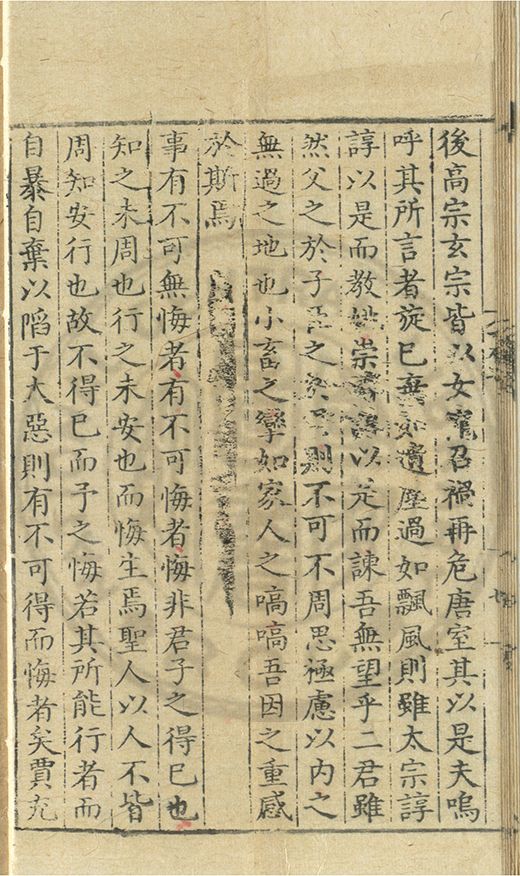 後高宗玄宗皆以女寵召禍再危唐室其以是夫嗚
呼其所言者旋已棄如遺塵過如飄風則雖太宗諄
諄以是而教姚崇以是而諫吾無望乎二君雖
然父之於子臣之於君則不可不周思極慮以內之
無過之地也小畜之孿如家人之嗃嗃吾因之重感
於斯焉
事有不可無悔者有不可悔者悔非君子之得已也
知之未周也行之未安也而悔生焉聖人以人不皆
周知安行也故不得已而予之悔若其所能行者而
自暴自棄以陷于大惡則有不可得而悔者矣賈充